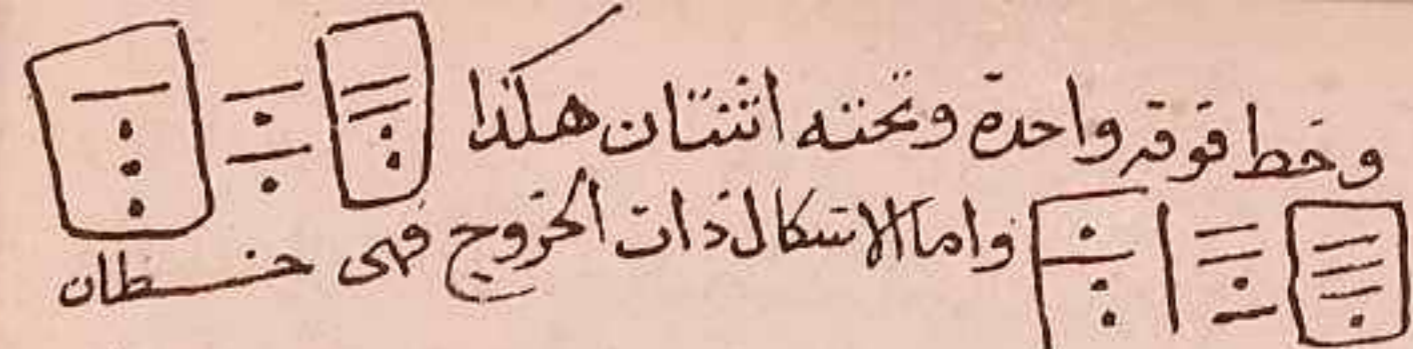 وخط فوقه واحدة وتحته اثنتان هكذا
واما الاشكال ذات الخروج فهى خطان